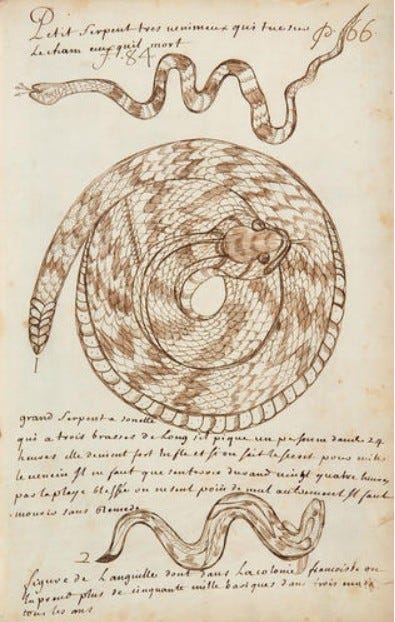 Petit Serpent tres venimeux qui tue sur p. 66
Le cham ceux quil mort
f. 84.
grand Serpent a sonette
qui a trois brasses de Long sil pique un dans le 24
heures elle devient fort enfle et si on fait le pour
le venein Il ne faut que durand vingt quatre heures
playe on ne sent poin de mal autrement Il faut
mourir sans Remede
2
figure de Languille dont dans La colonie francoise on
prend plus de cinquante mille bariques dans trois mois
tous les ans